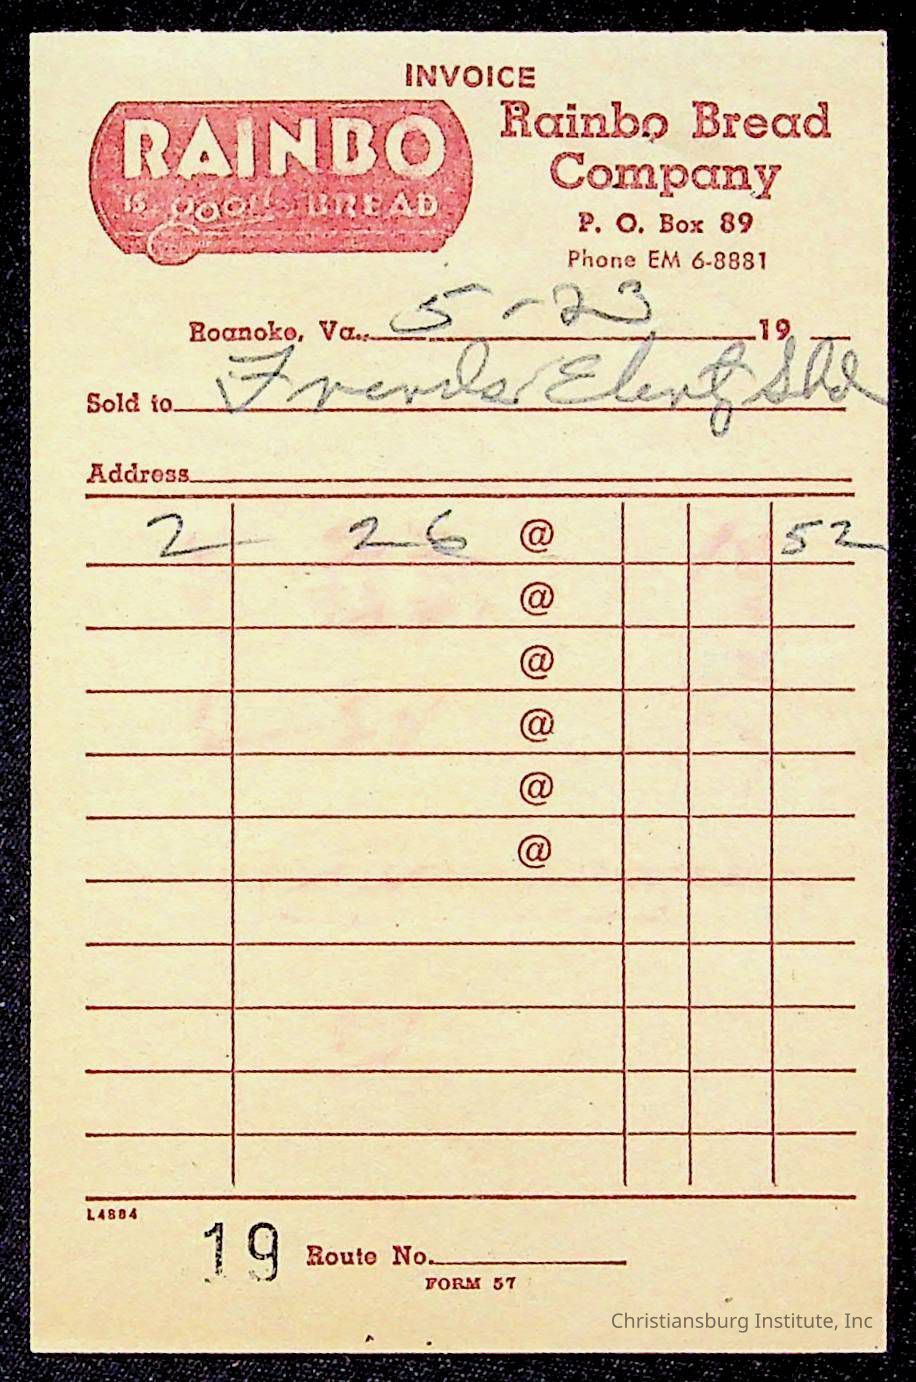 INVOICE
RAINBO
is good BREAD
Rainbo Bread
Company
P. O. Box 89
Phone EM 6-8881
Roanoke, Va. 5-23 19
Sold to Friends Elem Schl
Address
2 26 @ 52
@
@
@
@
@
L4884
19 Route No.
FORM 57
Christiansburg Institute, Inc